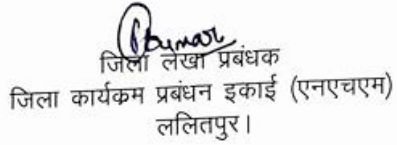 जिला लेखा प्रबंधक
जिला कार्यकम प्रबंधन इकाई (एनएचएम)
ललितपुर।